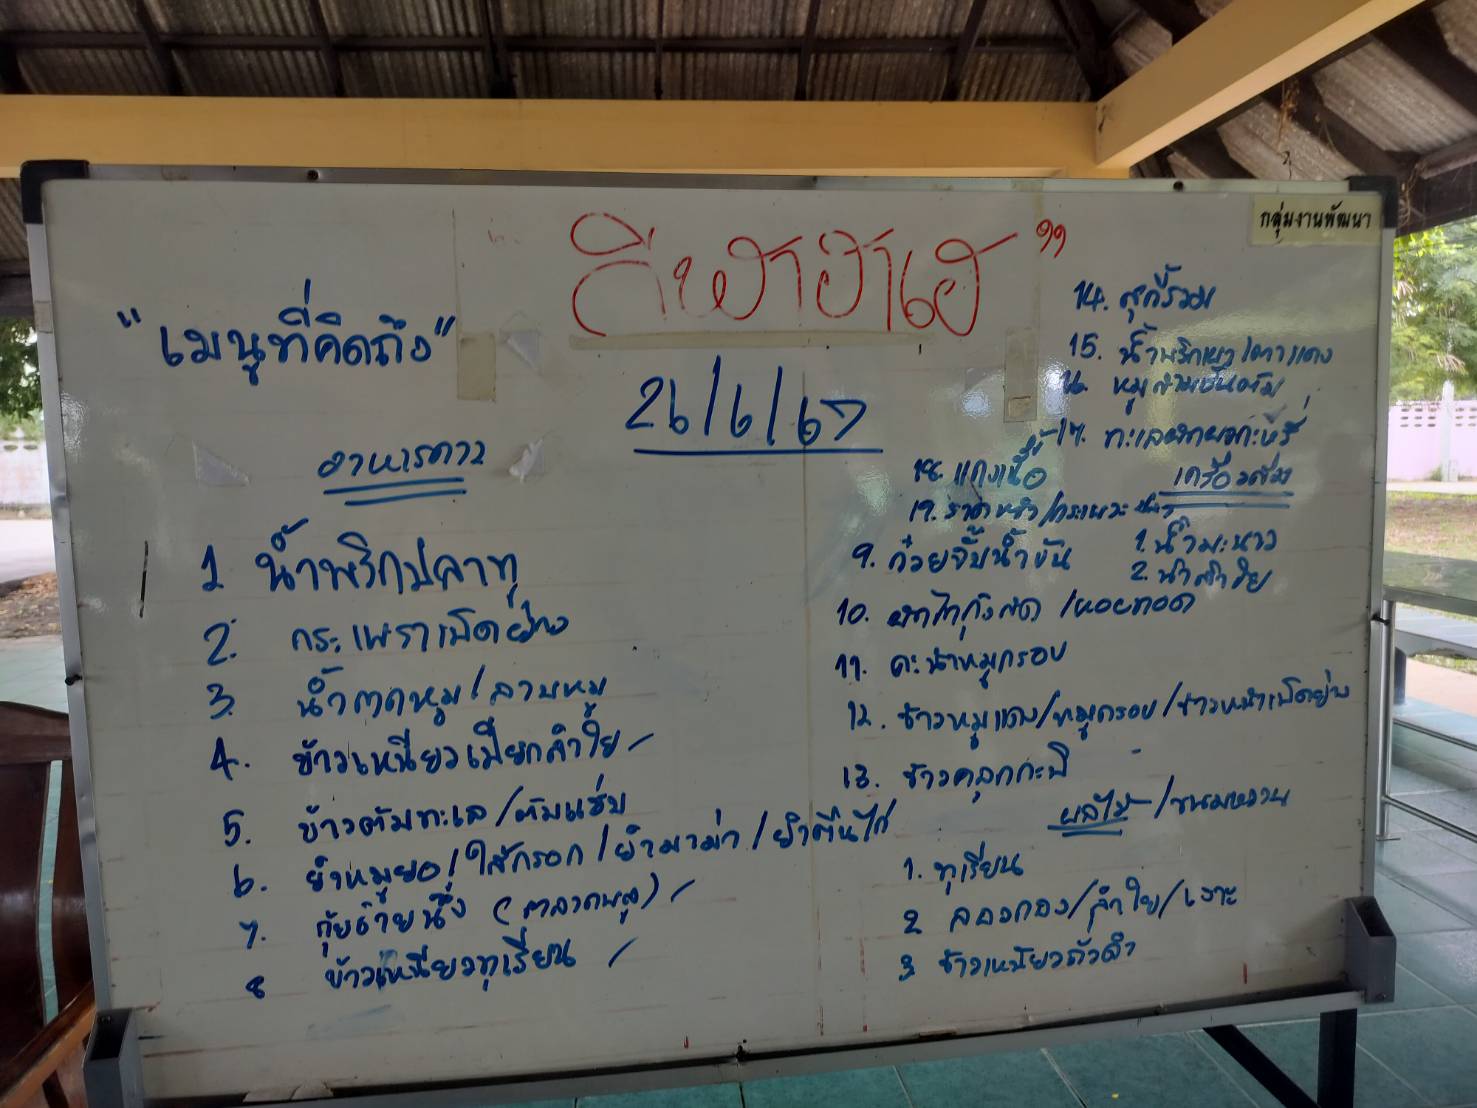 กลุ่มงานพัฒนา
กีฬาฮาเฮ"
"เมนูที่คิดถึง"
26/6/67
อาหารคาว
1 น้ำพริกปลาทู
2. กระเพราเป็ดย่าง
3 น้ำตกหมู/ลาบหมู
4. ข้าวเหนียวเปียกลำไย /
5. ข้าวต้มทะเล/ต้มแซ่บ
6. ยำหมูยอ/ไส้กรอก/ยำมาม่า/ยำตีนไก่
7. กุ้ยช่ายนึ่ง (ตลาดพลู) /
8 ข้าวเหนียวทุเรียน /
9. ก๋วยจั๊บน้ำข้น
10. ผัดไทกุ้งสด/หอยทอด
11. คะน้าหมูกรอบ
12. ข้าวหมูแดง/หมูกรอบ/ข้าวหน้าเป็ดย่าง
13. ข้าวคลุกกะปิ
14. สุกี้รวม
15. น้ำพริกเผา/ตาแดง
16. หมู
17. ทะเลผัดผงกะหรี่
18. แกงเนื้อ
19. ราดหน้า/กระเพาะปลา
เครื่องดื่ม
1. น้ำมะนาว
2. น้ำลำไย
ผลไม้/ขนมหวาน
1. ทุเรียน
2 ลองกอง/ลำใย/เงาะ
3 ข้าวเหนียวถั่วดำ